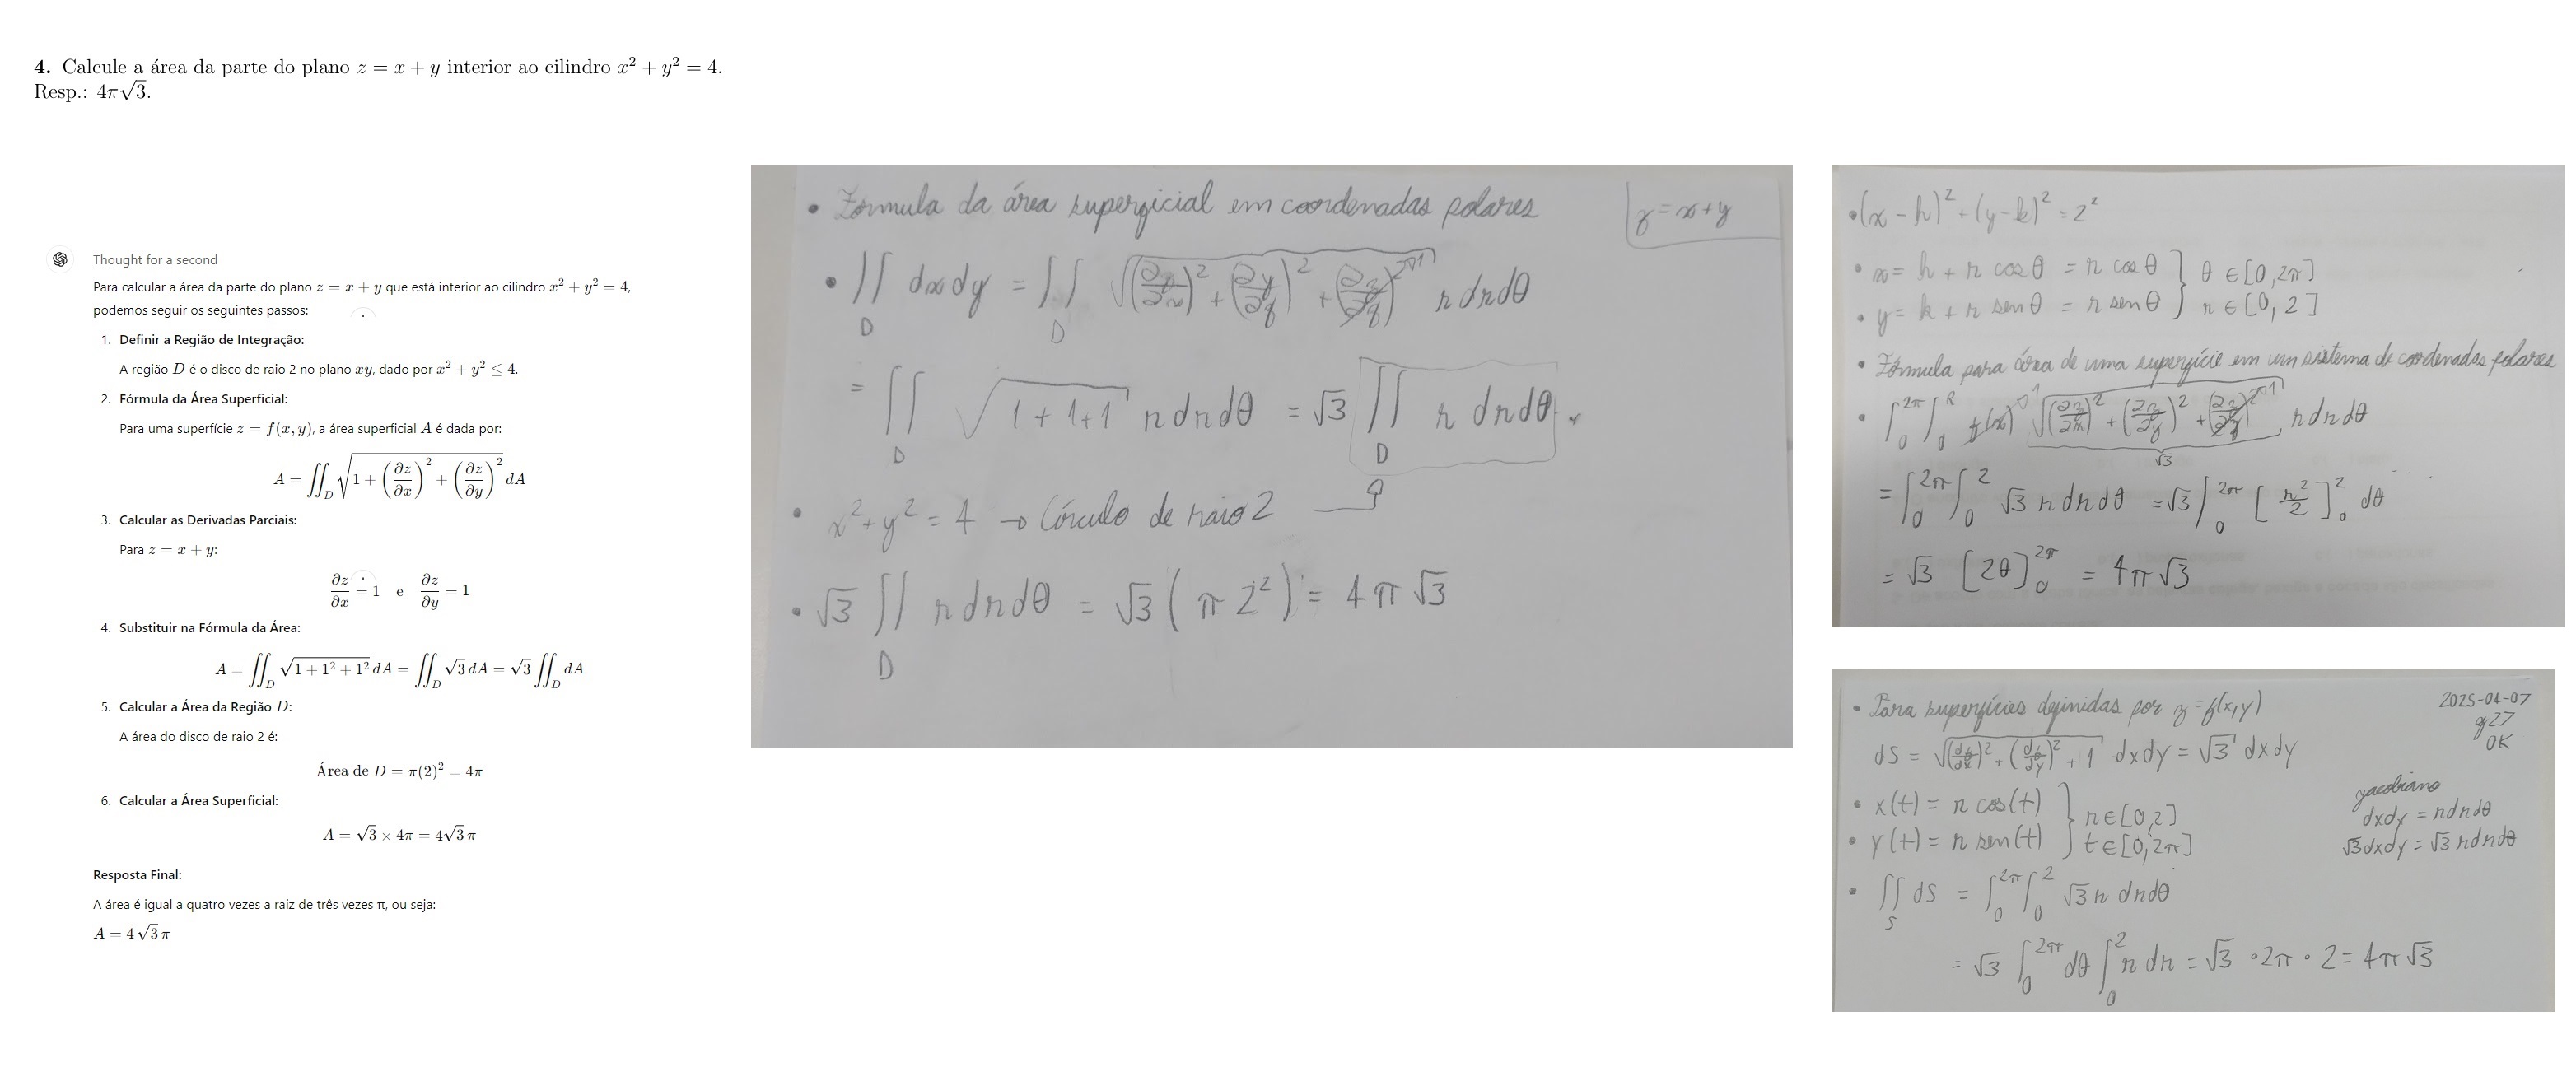 4. Calcule a área da parte do plano z = x + y interior ao cilindro x² + y² = 4.
Resp.: 4π√3.
Thought for a second
Para calcular a área da parte do plano z = x + y que está interior ao cilindro x² + y² = 4,
podemos seguir os seguintes passos:
1. Definir a Região de Integração:
A região D é o disco de raio 2 no plano xy, dado por x² + y² ≤ 4.
2. Fórmula da Área Superficial:
Para uma superfície z = f(x, y), a área superficial A é dada por:
A = ∬_D √(1 + (∂z/∂x)² + (∂z/∂y)²) dA
3. Calcular as Derivadas Parciais:
Para z = x + y:
∂z/∂x = 1 e ∂z/∂y = 1
4. Substituir na Fórmula da Área:
A = ∬_D √(1 + 1² + 1²) dA = ∬_D √3 dA = √3 ∬_D dA
5. Calcular a Área da Região D:
A área do disco de raio 2 é:
Área de D = π(2)² = 4π
6. Calcular a Área Superficial:
A = √3 × 4π = 4√3 π
Resposta Final:
A área é igual a quatro vezes a raiz de três vezes π, ou seja:
A = 4√3 π
• Fórmula da área superficial em coordenadas polares
z = x + y
• ∬_D dxdy = ∬_D r dr dθ
= ∬_D √(1+1+1) r dr dθ = √3 ∬_D r dr dθ
• x² + y² = 4 → Círculo de raio 2
• √3 ∬_D r dr dθ = √3 (π 2²) = 4π√3
• (x - h)² + (y - k)² = 2²
• x = h + r cos θ = r cos θ } θ ∈ [0, 2π]
• y = k + r sen θ = r sen θ } r ∈ [0, 2]
• Fórmula para área de uma superfície em um sistema de coordenadas polares
• ∫₀^2π ∫₀^R f(x) √((∂z/∂x)² + (∂z/∂y)² + (∂z/∂z)²) r dr dθ
√3
= ∫₀^2π ∫₀² √3 r dr dθ = √3 ∫₀^2π [r²/2]₀² dθ
= √3 [2θ]₀^2π = 4π√3
• Para superfícies definidas por z = f(x,y)
2025-04-07
g27
OK
dS = √((df/dx)² + (df/dy)² + 1) dxdy = √3 dxdy
• x(t) = r cos(t) } r ∈ [0,2]
• y(t) = r sen(t) } t ∈ [0,2π]
jacobiano
dxdy = r dr dθ
√3 dxdy = √3 r dr dθ
• ∬_S dS = ∫₀^2π ∫₀² √3 r dr dθ
= √3 ∫₀^2π dθ ∫₀² r dr = √3 · 2π · 2 = 4π√3